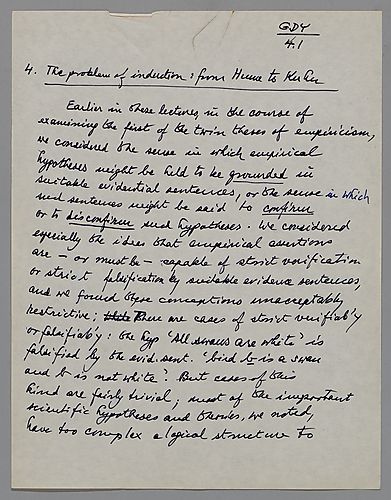 GDY
4.1
4. The problem of induction: from Hume to Kuhn
Earlier in these lectures, in the course of
examining the first of the twin theses of empiricism,
we considered the sense in which empirical
hypotheses might be held to be grounded in
suitable evidential sentences, or the sense in which
such sentences might be said to confirm
or to disconfirm such hypotheses. We considered
especially the idea that empirical assertions
are – or must be – capable of strict verification
or strict falsification by suitable evidence sentences,
and we found these conceptions unacceptably
restrictive; There are cases of strict verifiab'y
or falsifiab'y: the hyp 'All swans are white' is
falsified by the evid. sent. 'bird b is a swan
and b is not white'. But cases of this
kind are fairly trivial; most of the important
scientific hypotheses and theories, we noted,
have too complex a logical structure to